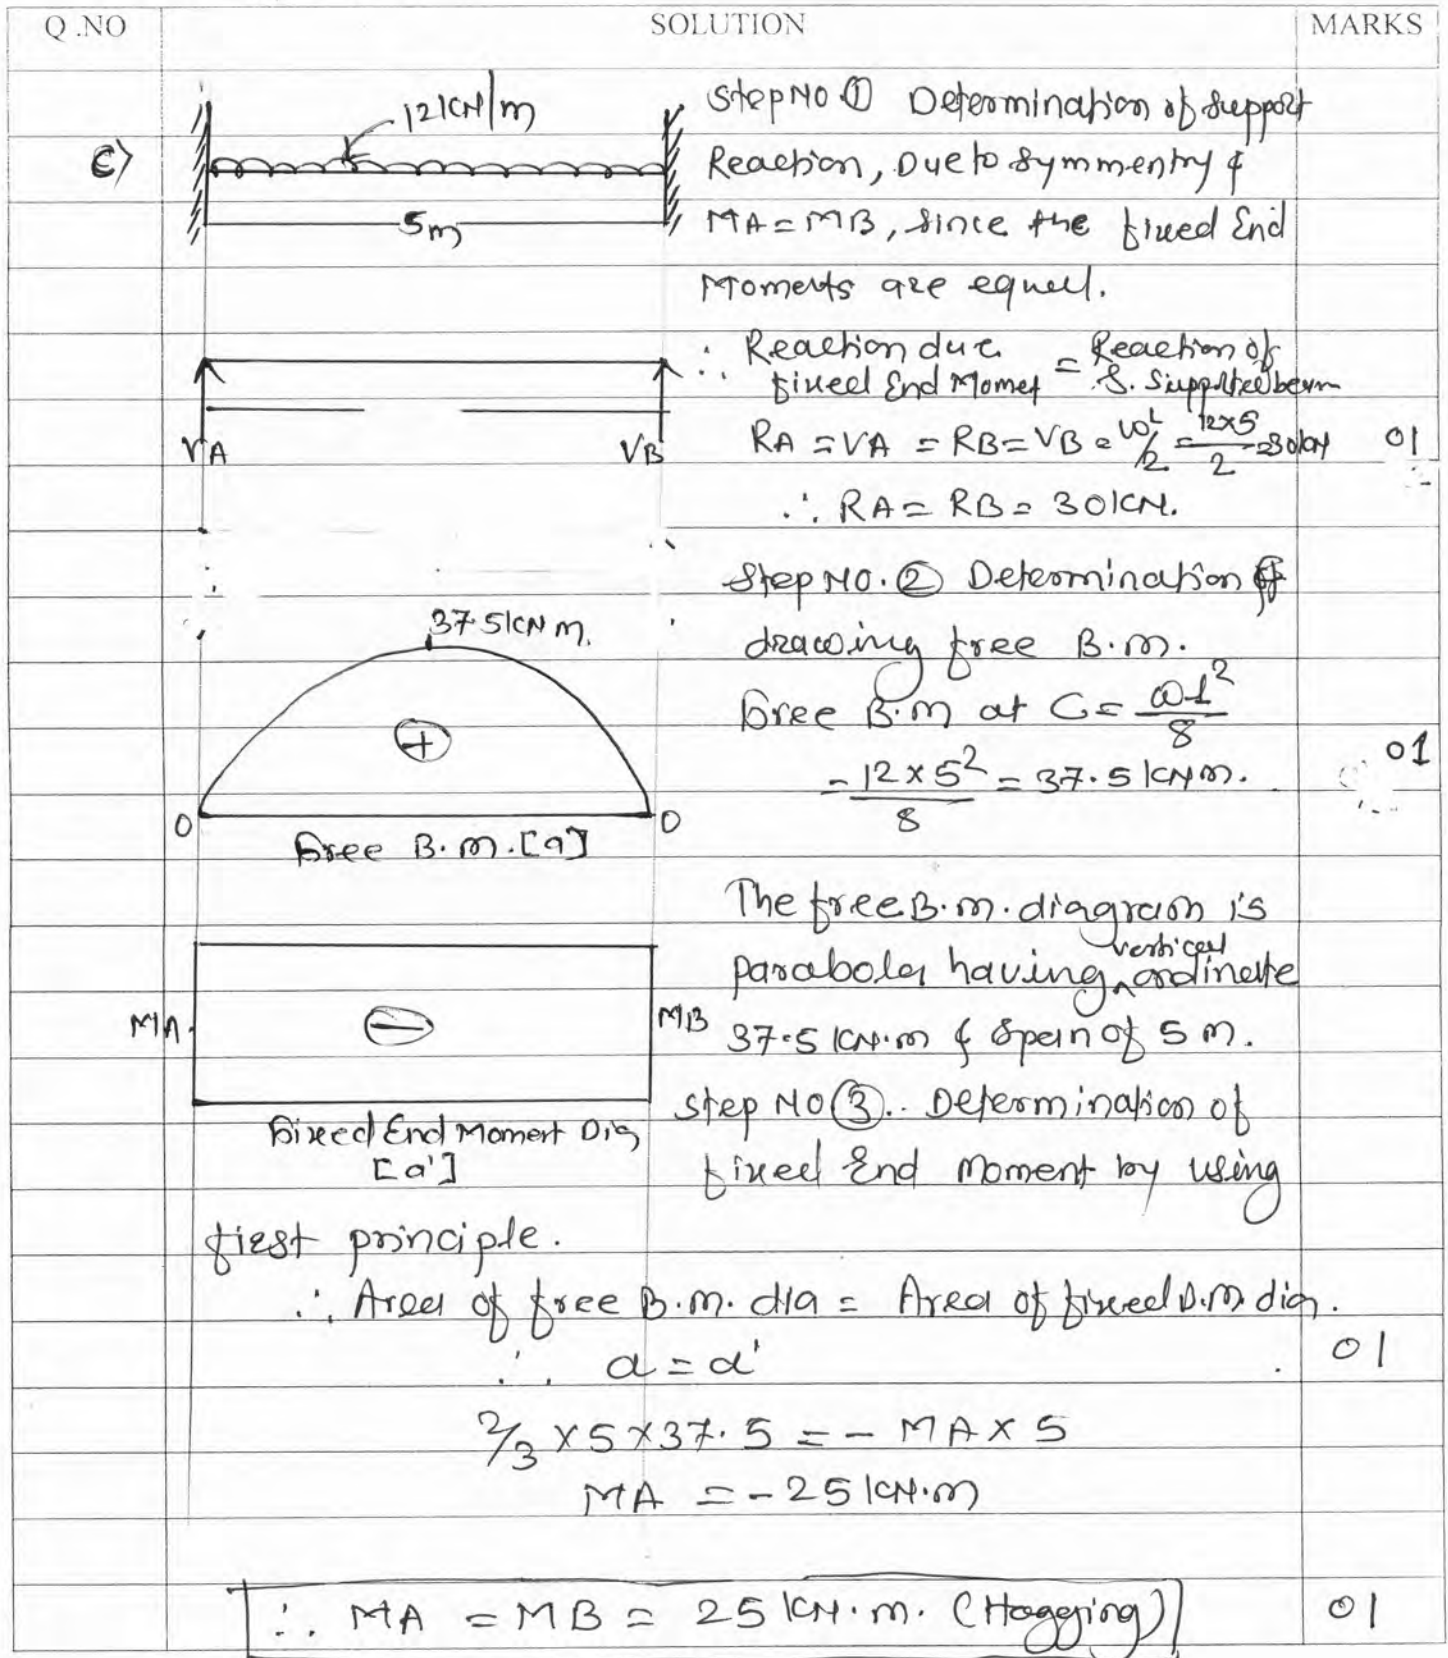 Q.NO SOLUTION MARKS
C) 12 kN/m
5m
Step No ① Determination of support
Reaction, Due to Symmentry &
MA = MB, since the fixed End
Moments are equal.
VA VB
∴ Reaction due fixed End Momet = Reaction of S. Supported beam
RA = VA = RB = VB = wl/2 = 12×5/2 = 30 kN 01
∴ RA = RB = 30 kN.
Step No. ② Determination of
drawing free B.M.
Free B.M at C = ωl²/8
= 12 × 5²/8 = 37.5 kN m. 01
37.5 kN m.
+
0 0
Free B.M. [a]
The free B.M. diagram is
parabola having vertical ordinate
37.5 kN.m & Span of 5 m.
MA - MB
Fixed End Moment Dig
[a']
Step No ③. Determination of
fixed End Moment by using
first principle.
∴ Area of free B.M. dia = Area of fixed B.M. dig.
∴ a = a' 01
2/3 × 5 × 37.5 = - MA × 5
MA = - 25 kN.m
∴ MA = MB = 25 kN.m. (Hogging) 01